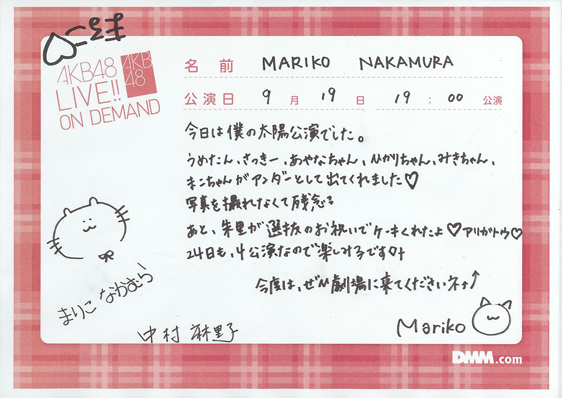 AKB48
LIVE!!
ON DEMAND
AKB
48
名前 MARIKO NAKAMURA
公演日 9月19日 19:00公演
今日は僕の太陽公演でした。
うめたん、さっきー、あやなちゃん、ひかりちゃん、みきちゃん、
まこちゃんがアンダーとして出てくれました♡
写真を撮れなくて残念る
あと、朱里が選抜のお祝いでケーキくれたよ♡アリガトウ♡
24日も、4公演なので楽しみるです
今度は、ぜひ劇場に来てくださいネ
まりこ なかむら
中村麻里子
Mariko
DMM.com